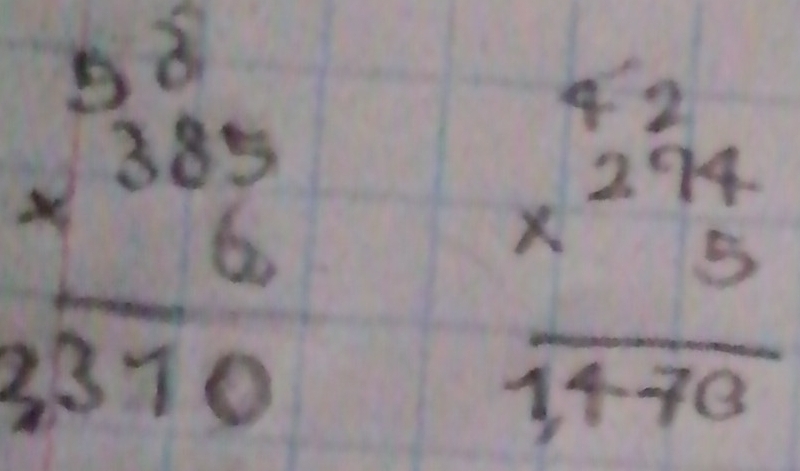 5 3
385
× 6
2,310
4 2
294
× 5
1,470